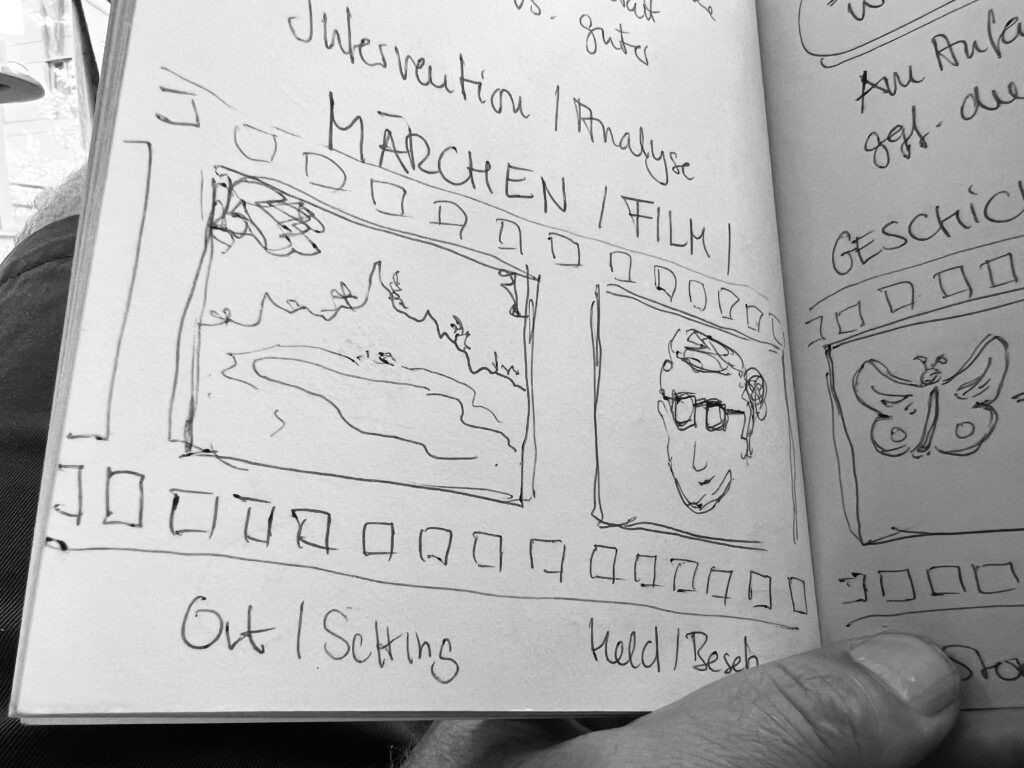 vs. statt
gutes
Intervention / Analyse
MÄRCHEN / FILM /
Ort / Setting
Held / Besch
Am Anfa
ggf. die
GESCHICH